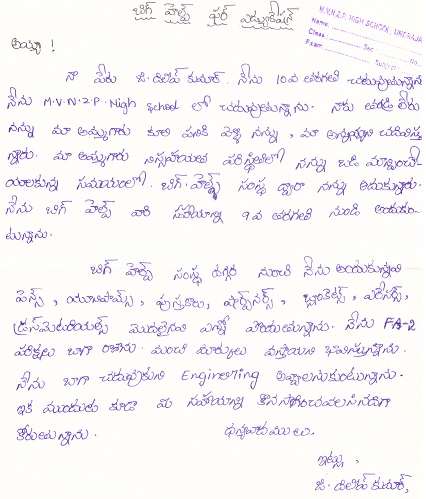 బిగ్ హెల్ప్ ఫర్ ఎడ్యుకేషన్
M.V.N.Z.P. HIGH SCHOOL,
Name
Class Sec No.
Exam Subject
అయ్యా !
నా పేరు జి. దిలీప్ కుమార్. నేను 10వ తరగతి చదువుతున్నాను
నేను M.V.N.Z.P. High School లో చదువుతున్నాను. నాకు తండ్రి లేరు
నన్ను మా అమ్మగారు కూలి పనికి వెళ్ళి నన్ను, మా అన్నయ్యని చదివిస్తు
న్నారు. మా అమ్మగారు నిస్సహాయత పరిస్థితిలో నన్ను బడి మాన్పించే
యాలకున్న సమయంలో. బిగ్ హెల్ప్ సంస్థ ద్వారా నన్ను ఆదుకున్నారు.
నేను బిగ్ హెల్ప్ వారి సహాయాన్ని 9వ తరగతి నుండి అందుకుం-
టున్నాను.
బిగ్ హెల్ప్ సంస్థ దగ్గర నుంచి నేను అందుకున్నవి
పెన్స్, యూనిఫామ్స్, పుస్తకాలు, షార్ప్‌నర్స్, బ్లాంకెట్స్, ఎరేసర్స్,
డ్రస్‌మెటీరియల్స్ మొదలైనవి ఎన్నో పొందుతున్నాను. నేను FA-2
పరీక్షలు బాగా రాశాను. మంచి మార్కులు వస్తాయని భావిస్తున్నాను.
నేను బాగా చదువుకుని Engineering అవ్వాలనుకుంటున్నాను.
ఇక ముందుకు కూడా మీ సహాయాన్ని కొనసాగించవలసినదిగా
కోరుతున్నాను. ధన్యవాదములు.
ఇట్లు,
జి. దిలీప్ కుమార్,